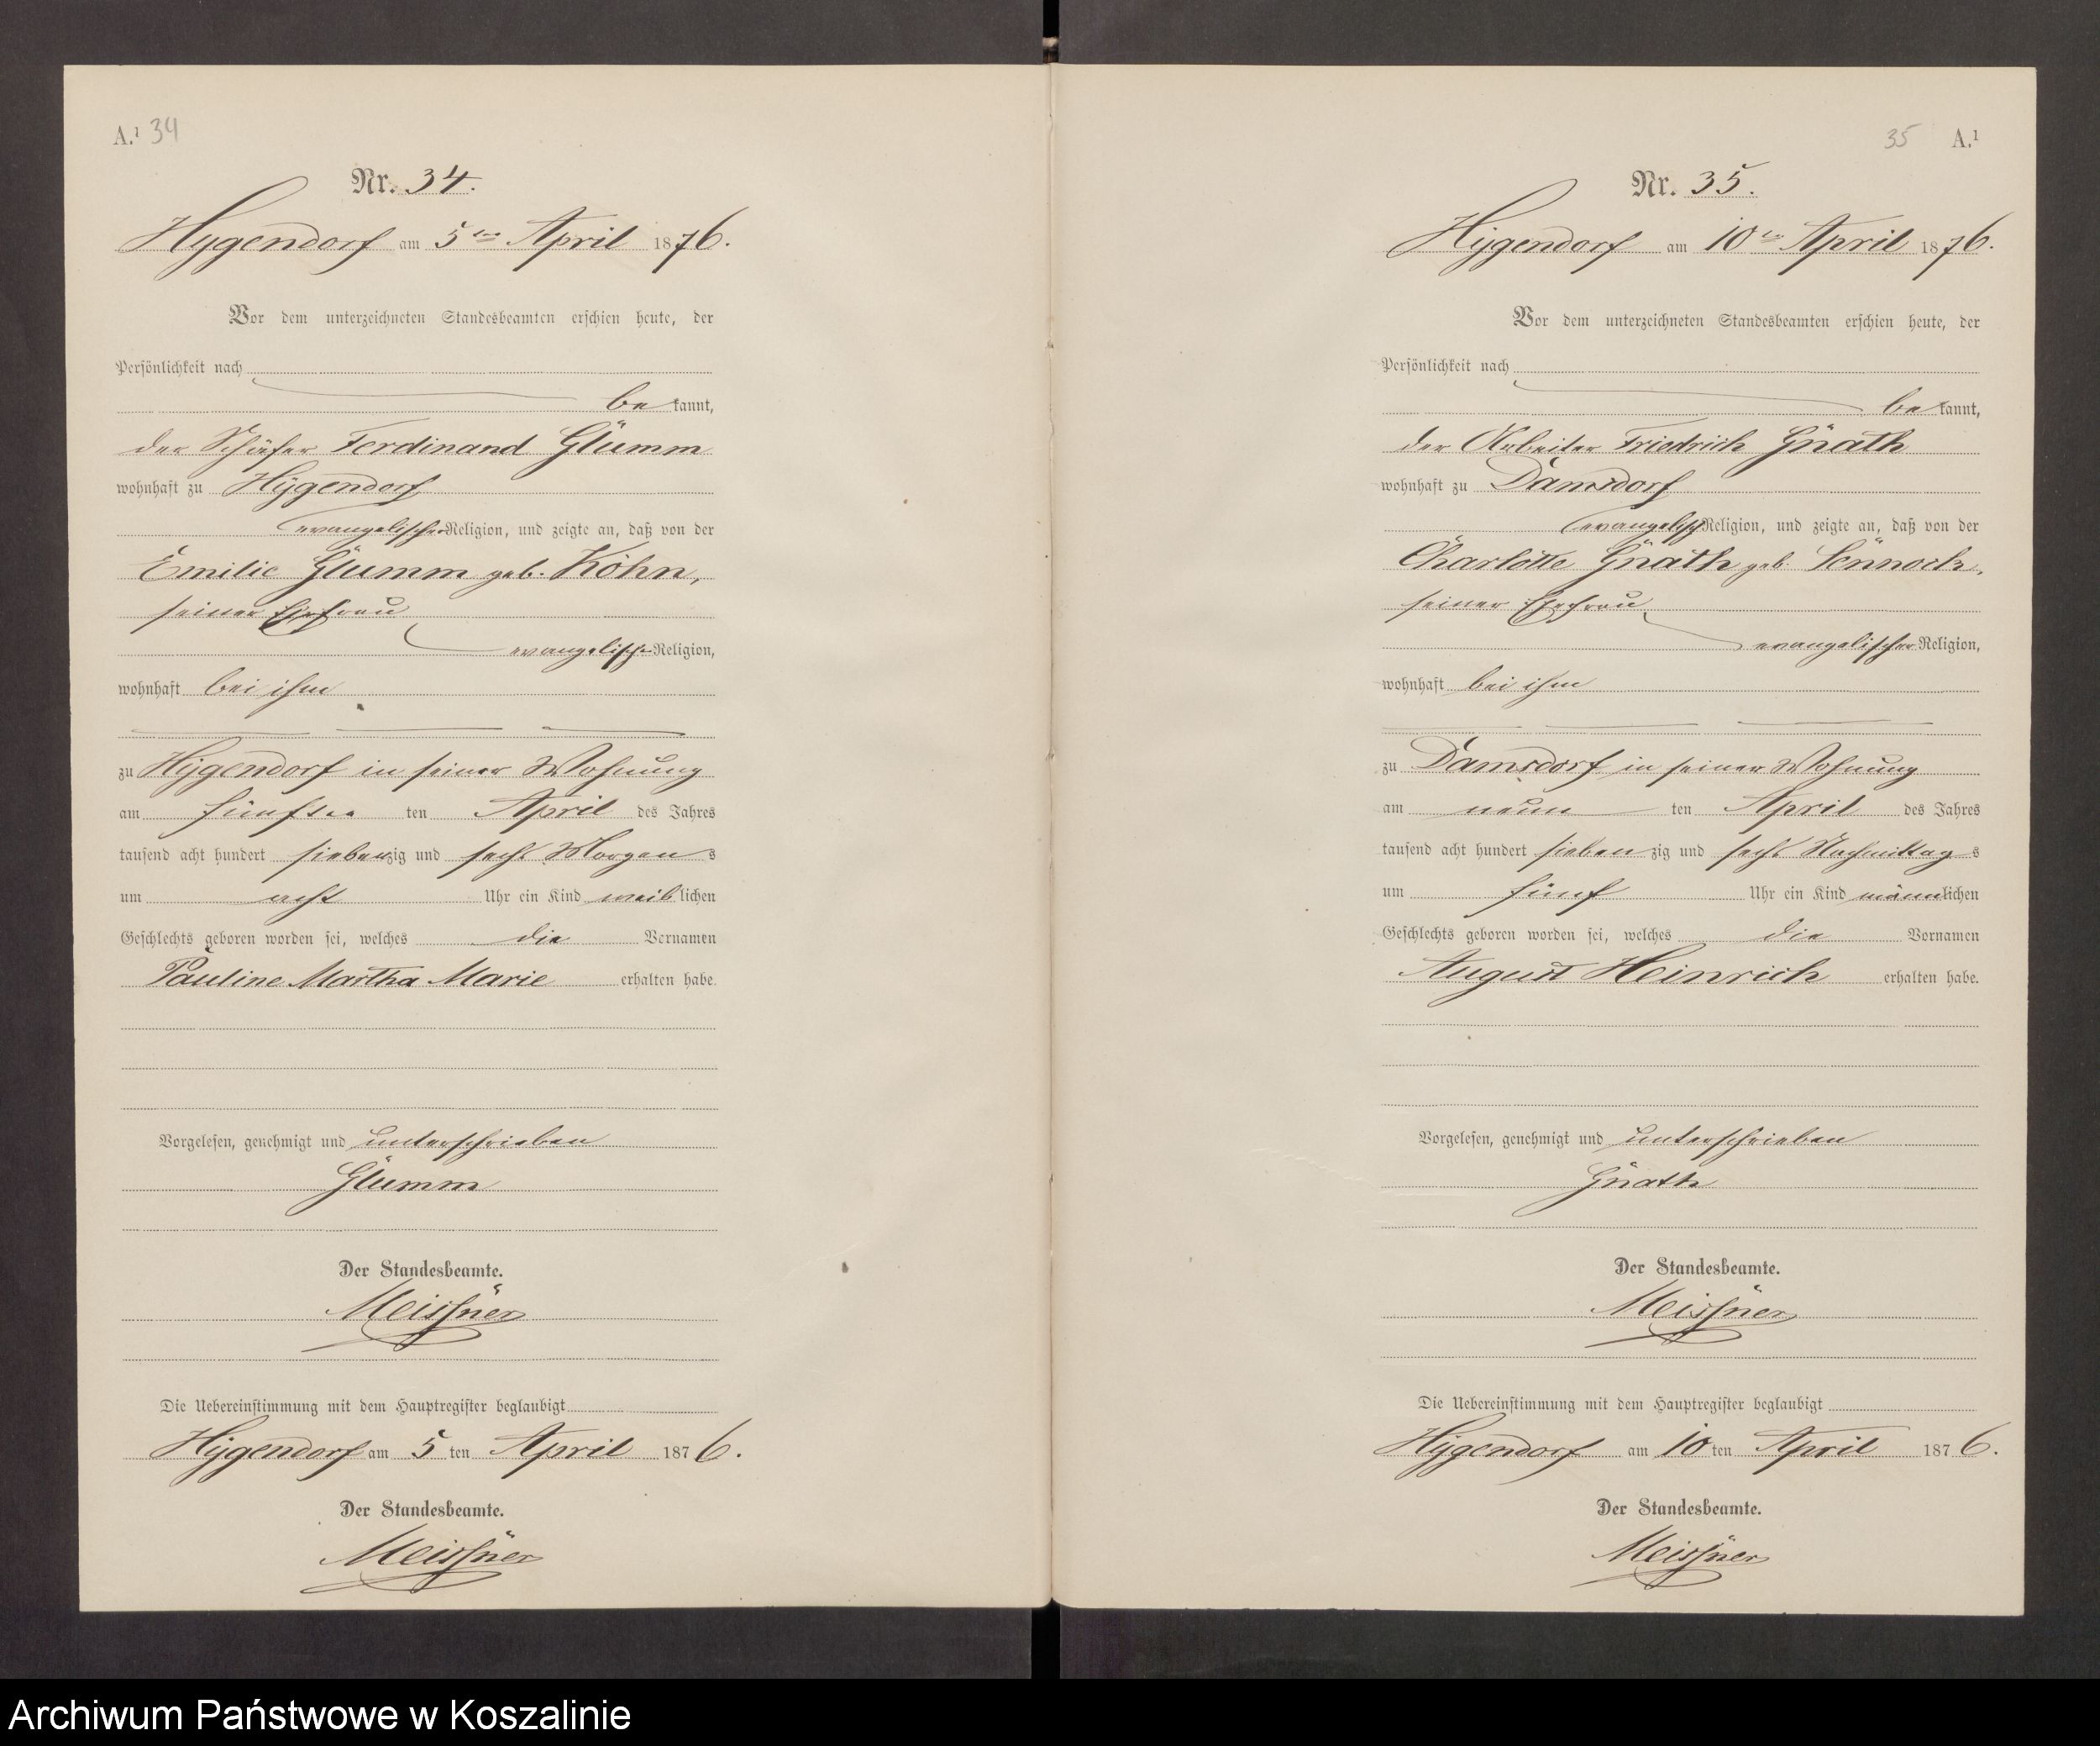 A.¹ 34
Nr. 34.
Hygendorf am 5ten April 1876.
Vor dem unterzeichneten Standesbeamten erschien heute, der
Persönlichkeit nach
be kannt,
der Schäfer Ferdinand Glumm
wohnhaft zu Hÿgendorf
evangelischer Religion, und zeigte an, daß von der
Emilie Glumm geb. Köhn,
seiner Ehefrau
evangelischer Religion,
wohnhaft bei ihm
zu Hÿgendorf in seiner Wohnung
am fünften ten April des Jahres
tausend acht hundert siebenzig und sechs Morgens
um acht Uhr ein Kind weiblichen
Geschlechts geboren worden sei, welches die Vornamen
Pauline Martha Marie erhalten habe.
Vorgelesen, genehmigt und unterschrieben
Glumm
Der Standesbeamte.
Meissner
Die Uebereinstimmung mit dem Hauptregister beglaubigt
Hÿgendorf am 5 ten April 1876.
Der Standesbeamte.
Meissner
35 A.¹
Nr. 35.
Hÿgendorf am 10ten April 1876.
Vor dem unterzeichneten Standesbeamten erschien heute, der
Persönlichkeit nach
be kannt,
der Arbeiter Friedrich Gnath
wohnhaft zu Damsdorf
evangelisch Religion, und zeigte an, daß von der
Charlotte Gnath geb.
seiner Ehefrau
evangelischer Religion,
wohnhaft bei ihm
zu Damsdorf in seiner Wohnung
am neun ten April des Jahres
tausend acht hundert siebenzig und sechs Nachmittags
um fünf Uhr ein Kind männlichen
Geschlechts geboren worden sei, welches die Vornamen
August Heinrich erhalten habe.
Vorgelesen, genehmigt und unterschrieben
Gnath
Der Standesbeamte.
Meissner
Die Uebereinstimmung mit dem Hauptregister beglaubigt
Hÿgendorf am 10 ten April 1876.
Der Standesbeamte.
Meissner
Archiwum Państwowe w Koszalinie